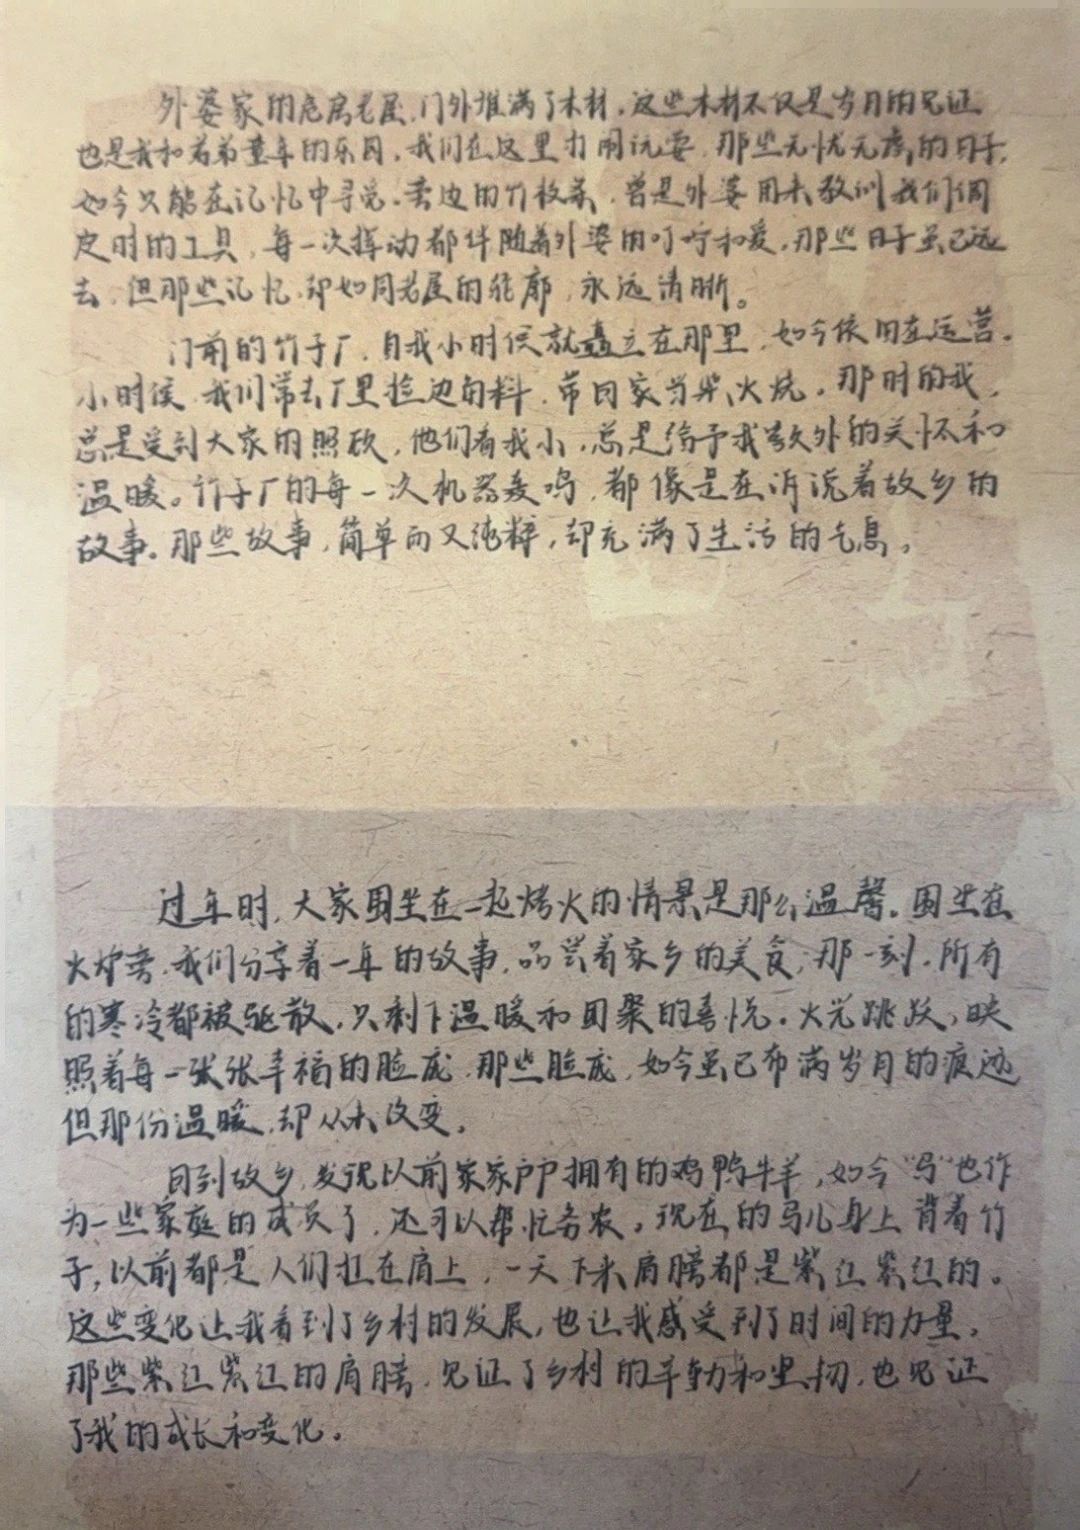 外婆家的危房老屋,门外堆满了木材,这些木材不仅是岁月的见证
也是我和弟弟童年的乐园,我们在这里打闹玩耍,那些无忧无虑的日子,
如今只能在记忆中寻觅。旁边的竹枝条,曾是外婆用来教训我们调
皮时的工具,每一次挥动都伴随着外婆的叮咛和爱,那些日子虽已远
去,但那些记忆,却如同老屋的轮廓,永远清晰。
门前的竹子厂,自我小时候就矗立在那里,如今依旧在运营。
小时候,我们常去厂里捡边角料,带回家当柴火烧。那时的我,
总是受到大家的照顾,他们看我小,总是给予我额外的关怀和
温暖。竹子厂的每一次机器轰鸣,都像是在诉说着故乡的
故事。那些故事,简单而又纯粹,却充满了生活的气息。
过年时,大家围坐在一起烤火的情景是那么温馨。围坐在
火炉旁,我们分享着一年的故事,品尝着家乡的美食,那一刻,所有
的寒冷都被驱散,只剩下温暖和团聚的喜悦。火光跳跃,映
照着每一张张幸福的脸庞,那些脸庞,如今虽已布满岁月的痕迹
但那份温暖,却从未改变。
回到故乡,发现以前家家户户拥有的鸡鸭牛羊,如今“马”也作
为一些家庭的成员了,还可以帮忙务农。现在的马儿身上背着竹
子,以前都是人们扛在肩上,一天下来肩膀都是紫红紫红的。
这些变化让我看到了乡村的发展,也让我感受到了时间的力量,
那些紫红紫红的肩膀,见证了乡村的辛勤和坚韧,也见证
了我的成长和变化。